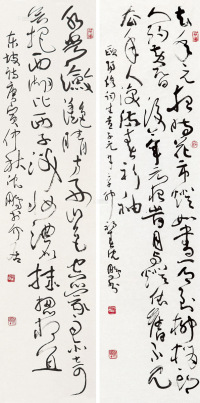 去年元夜時花市燈如晝月到柳梢頭
人約黃昏後今年元夜時月與燈依舊不見
去年人淚濕春衫袖
歐陽修詞生查子元夕 沈鵬
水光瀲灩晴方好山色空濛雨亦奇
若把西湖比西子淡妝濃抹總相宜
東坡詩庚寅仲秋沈鵬於介居